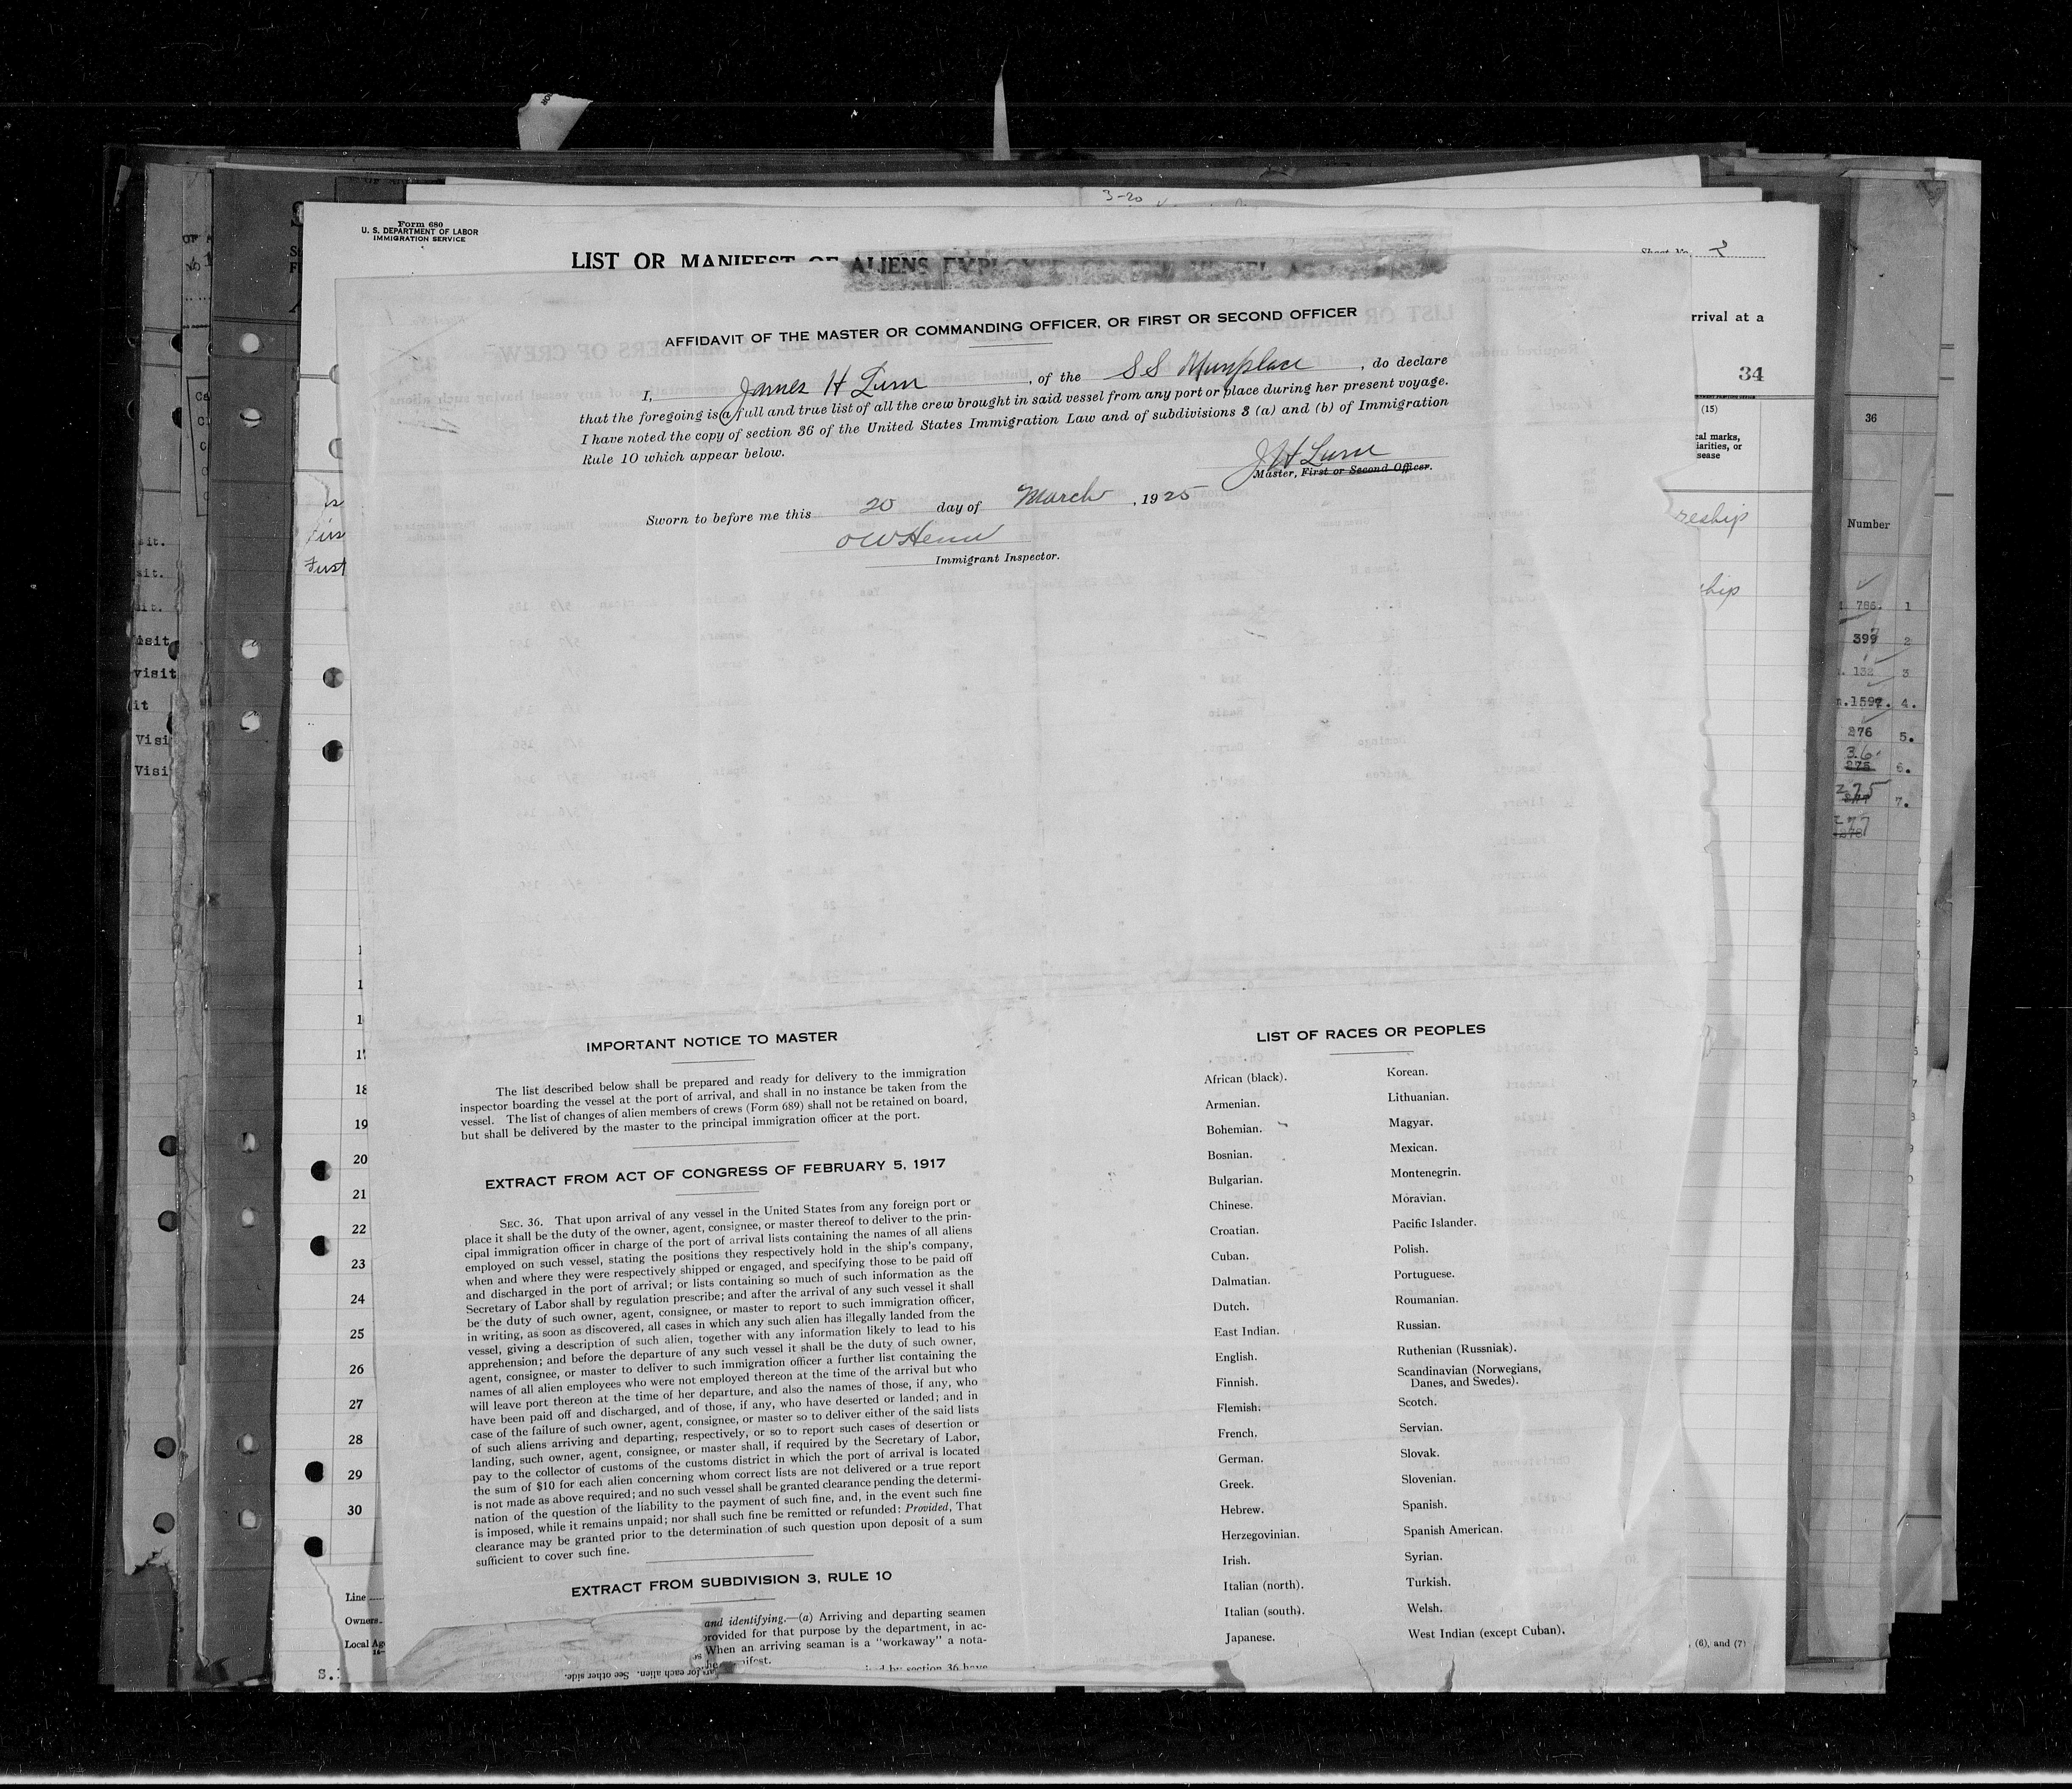 3-20
Form 680
U. S. DEPARTMENT OF LABOR
IMMIGRATION SERVICE
LIST OR MANIFEST OF ALIENS
Sheet No. 2
rrival at a
34
(15)
cal marks,
iarities, or
sease
reship
ship
AFFIDAVIT OF THE MASTER OR COMMANDING OFFICER, OR FIRST OR SECOND OFFICER
I, James H Lum, of the SS Munplace, do declare
that the foregoing is a full and true list of all the crew brought in said vessel from any port or place during her present voyage.
I have noted the copy of section 36 of the United States Immigration Law and of subdivisions 3 (a) and (b) of Immigration
Rule 10 which appear below.
J H Lum
Master, First or Second Officer.
Sworn to before me this 20 day of March, 1925
Immigrant Inspector.
IMPORTANT NOTICE TO MASTER
The list described below shall be prepared and ready for delivery to the immigration
inspector boarding the vessel at the port of arrival, and shall in no instance be taken from the
vessel. The list of changes of alien members of crews (Form 689) shall not be retained on board,
but shall be delivered by the master to the principal immigration officer at the port.
EXTRACT FROM ACT OF CONGRESS OF FEBRUARY 5, 1917
SEC. 36. That upon arrival of any vessel in the United States from any foreign port or
place it shall be the duty of the owner, agent, consignee, or master thereof to deliver to the prin-
cipal immigration officer in charge of the port of arrival lists containing the names of all aliens
employed on such vessel, stating the positions they respectively hold in the ship's company,
when and where they were respectively shipped or engaged, and specifying those to be paid off
and discharged in the port of arrival; or lists containing so much of such information as the
Secretary of Labor shall by regulation prescribe; and after the arrival of any such vessel it shall
be the duty of such owner, agent, consignee, or master to report to such immigration officer,
in writing, as soon as discovered, all cases in which any such alien has illegally landed from the
vessel, giving a description of such alien, together with any information likely to lead to his
apprehension; and before the departure of any such vessel it shall be the duty of such owner,
agent, consignee, or master to deliver to such immigration officer a further list containing the
names of all alien employees who were not employed thereon at the time of the arrival but who
will leave port thereon at the time of her departure, and also the names of those, if any, who
have been paid off and discharged, and of those, if any, who have deserted or landed; and in
case of the failure of such owner, agent, consignee, or master so to deliver either of the said lists
of such aliens arriving and departing, respectively, or so to report such cases of desertion or
landing, such owner, agent, consignee, or master shall, if required by the Secretary of Labor,
pay to the collector of customs of the customs district in which the port of arrival is located
the sum of $10 for each alien concerning whom correct lists are not delivered or a true report
is not made as above required; and no such vessel shall be granted clearance pending the determi-
nation of the question of the liability to the payment of such fine, and, in the event such fine
is imposed, while it remains unpaid; nor shall such fine be remitted or refunded: Provided, That
clearance may be granted prior to the determination of such question upon deposit of a sum
sufficient to cover such fine.
EXTRACT FROM SUBDIVISION 3, RULE 10
and identifying.—(a) Arriving and departing seamen
provided for that purpose by the department, in ac-
When an arriving seaman is a "workaway" a nota-
by section 36 have
for each alien. See other side.
LIST OF RACES OR PEOPLES
African (black).
Armenian.
Bohemian.
Bosnian.
Bulgarian.
Chinese.
Croatian.
Cuban.
Dalmatian.
Dutch.
East Indian.
English.
Finnish.
Flemish.
French.
German.
Greek.
Hebrew.
Herzegovinian.
Irish.
Italian (north).
Italian (south).
Japanese.
Korean.
Lithuanian.
Magyar.
Mexican.
Montenegrin.
Moravian.
Pacific Islander.
Polish.
Portuguese.
Roumanian.
Russian.
Ruthenian (Russniak).
Scandinavian (Norwegians,
Danes, and Swedes).
Scotch.
Servian.
Slovak.
Slovenian.
Spanish.
Spanish American.
Syrian.
Turkish.
Welsh.
West Indian (except Cuban).
18
19
20
21
22
23
24
25
26
27
28
29
30
Line
Owners
Local Ag
, (6), and (7)
36
Number
786. 1
399 2
138 3
1597. 4.
276 5.
36
275 6.
275
7.
277
278
sit.
sit.
visit
visit
it
Visi
Visi
First